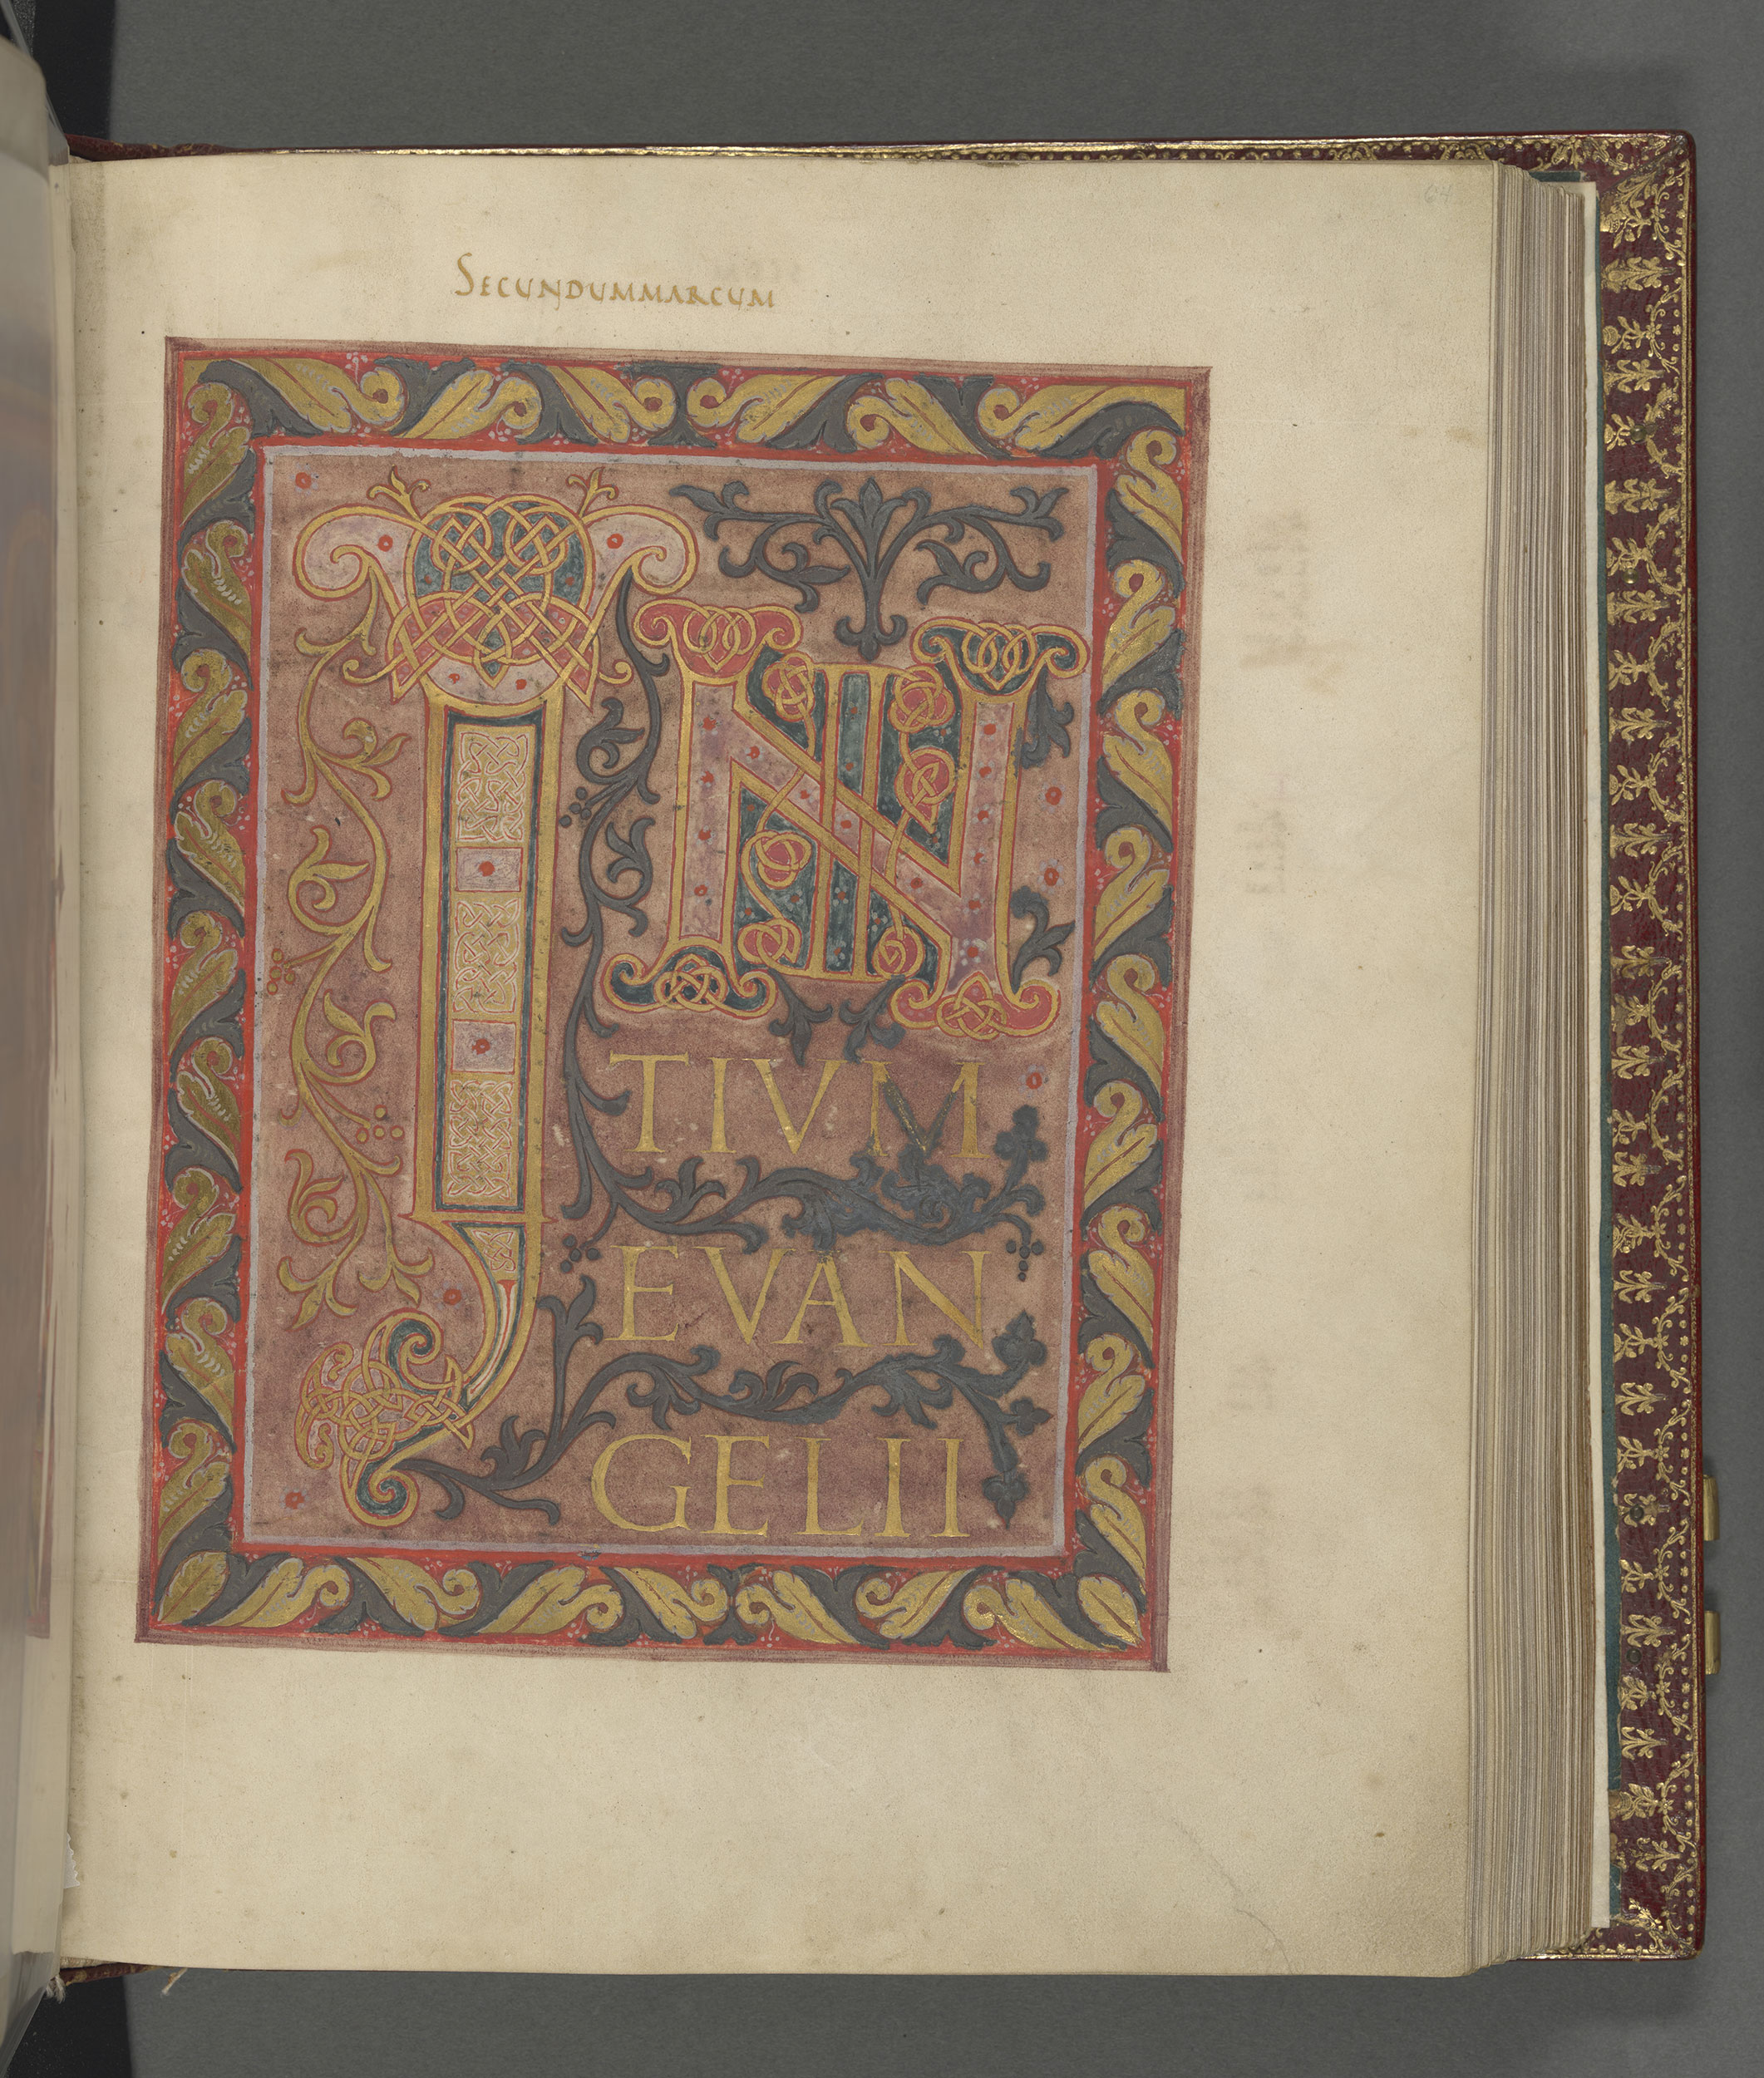 SECUNDUMMARCUM
64
INI
TIVM
EVAN
GELII